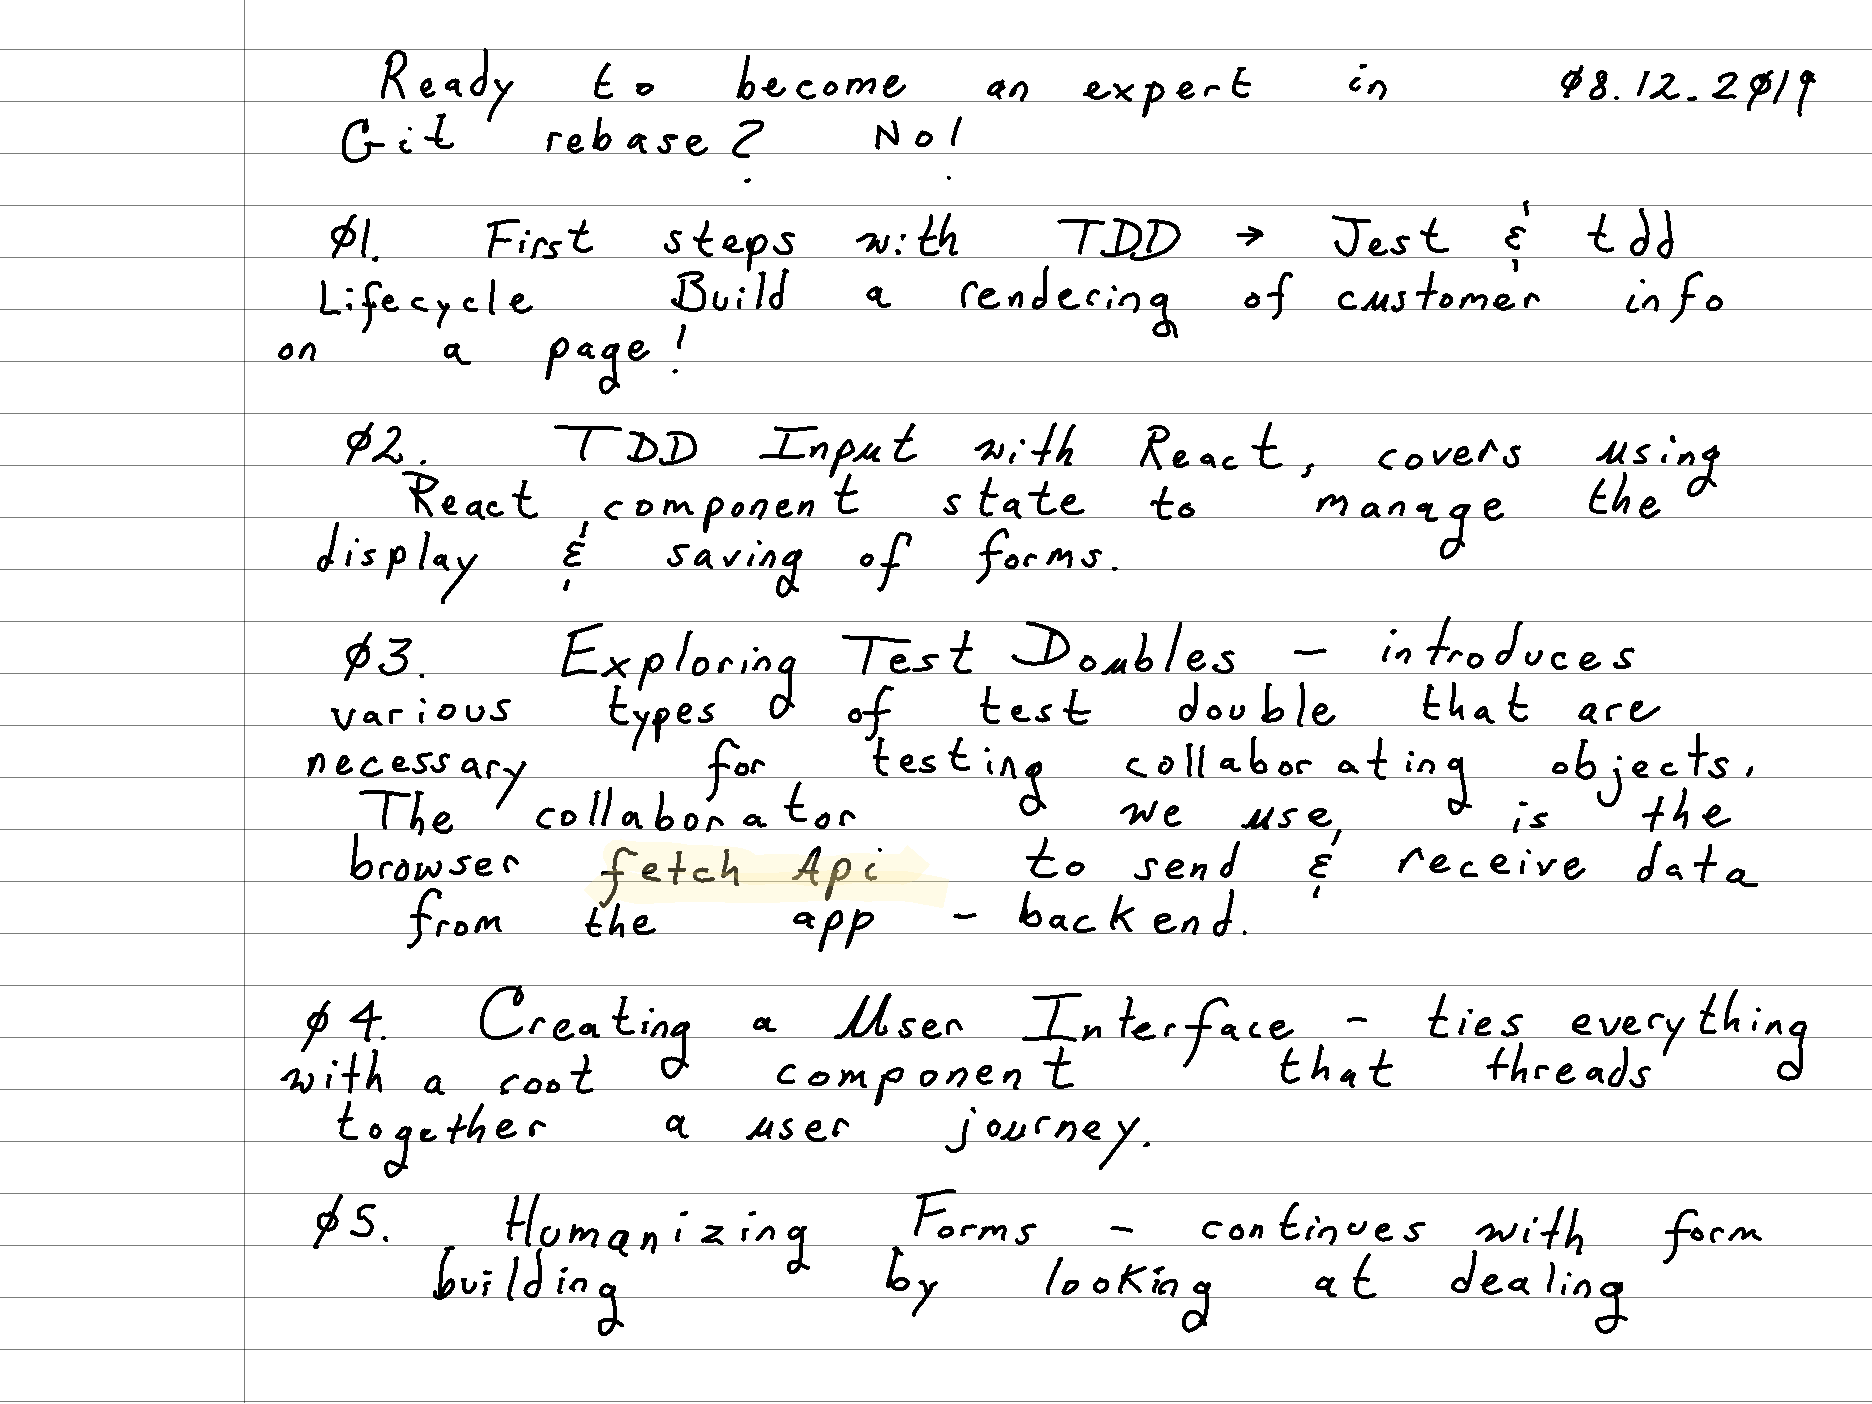 Ready to become an expert in 08.12.2019
Git rebase? No!
01. First steps with TDD → Jest & tdd
Lifecycle Build a rendering of customer info
on a page!
02. TDD Input with React, covers using
React component state to manage the
display & saving of forms.
03. Exploring Test Doubles - introduces
various types of test double that are
necessary for testing collaborating objects.
The collaborator we use, is the
browser fetch Api to send & receive data
from the app - backend.
04. Creating a User Interface - ties everything
with a root component that threads
together a user journey.
05. Humanizing Forms - continues with form
building by looking at dealing